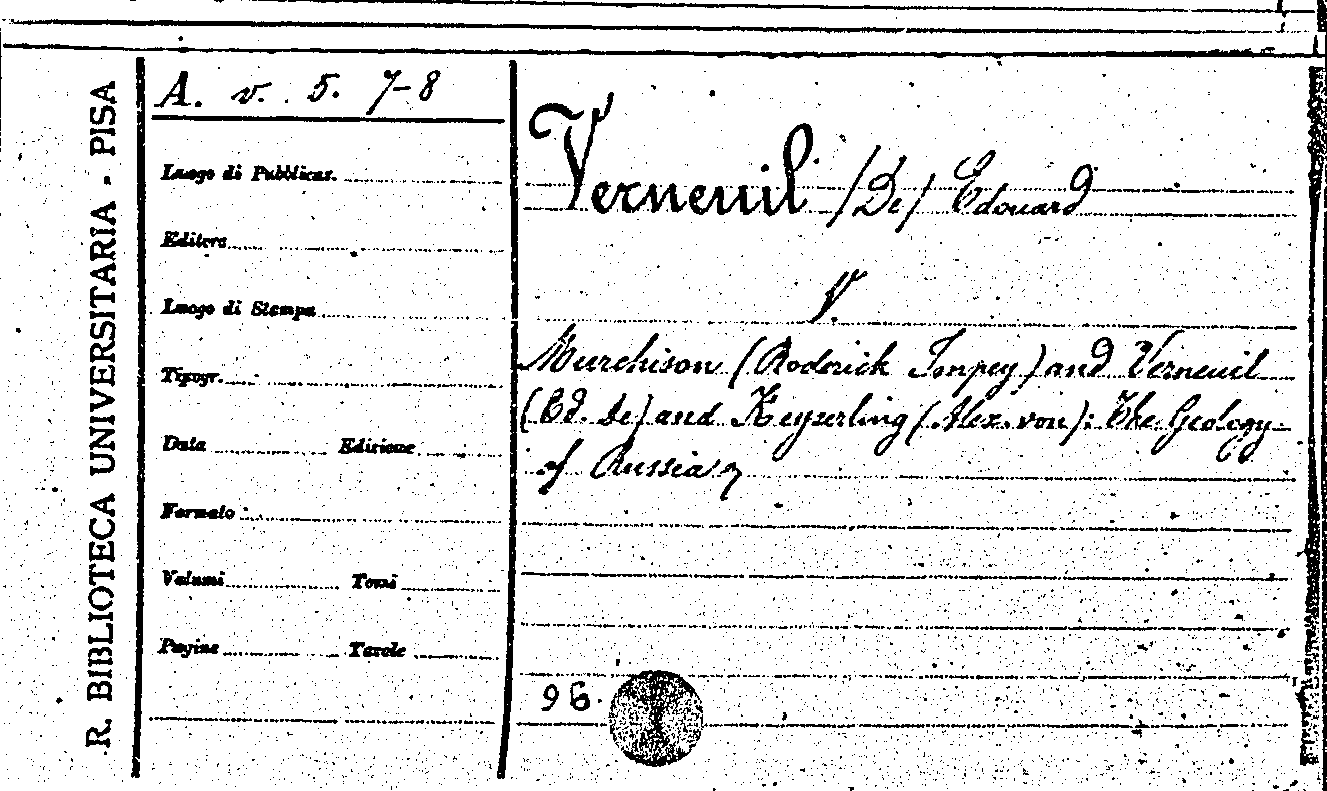 R. BIBLIOTECA UNIVERSITARIA - PISA
A. v. 5. 7-8
Luogo di Pubblicaz.
Editore
Luogo di Stampa
Tipogr.
Data Edizione
Formato
Volumi Tomi
Pagine Tavole
Verneuil /De/ Edouard
V.
Murchison (Roderick Impey) and Verneuil
(Ed. De) and Keyserling (Alex. von): The Geology
of Russia
96.